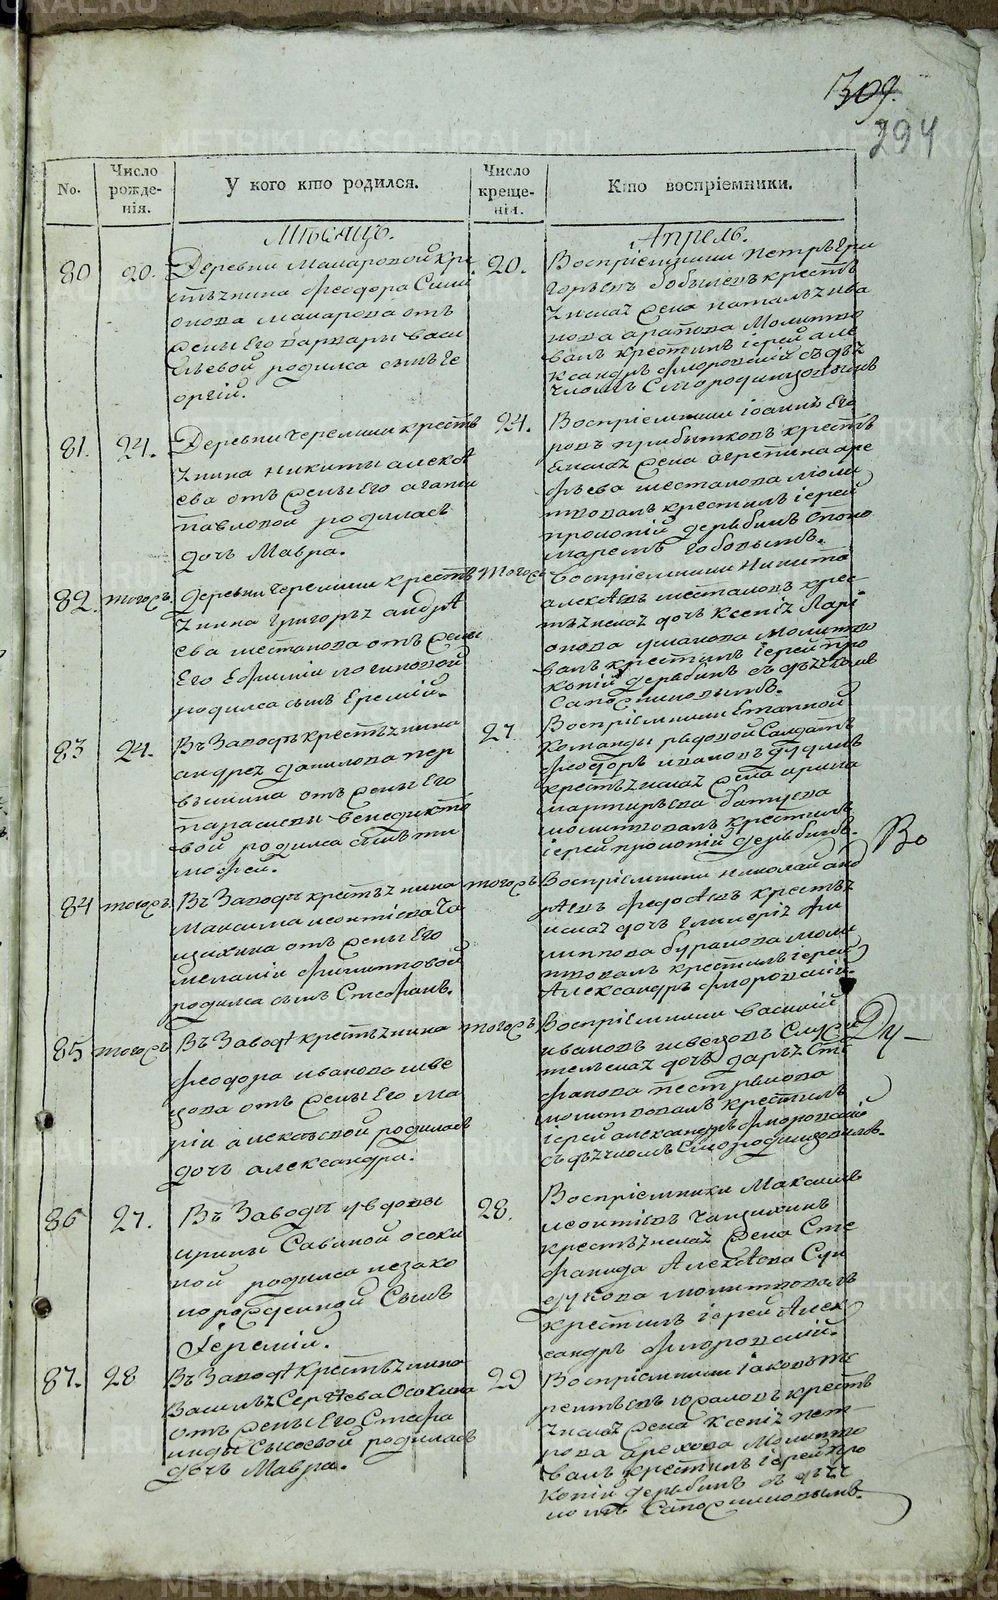 309.
294
No.
Число рожде-нія.
У кого кто родился.
Число креще-нія.
Кто воспріемники.
Мѣсяцъ.
Апрель.
80
20.
Деревни Макаровой кре
стьянина Феодора Сими
онова Макарова отъ
жены Его варвары васи
льевой родился сынъ ге
оргій.
20.
Воспріемники петръ гри
горьевъ
крестья
янская жена наталья ива
нова
Молитво
валъ крестилъ іерей але
ксандръ Флоровскій съ дья
чкомъ Смородинцовымъ
81.
24.
Деревни Черемши крестья
янина никиты алексѣ
ева отъ жены Его агафьи
павловой родилась
дочь Мавра.
24.
Воспріемники іоаннъ Его
ровъ прибытковъ крестья
янская жена агрепина аре
фьева шестакова моли
твовалъ крестилъ іерей
прокопій дерябинъ с поно
маремъ
82.
тогожъ.
деревни Черемши крестья
янина григорья андрѣ
ева шестакова отъ жены
Его Ефиміи логиновой
родился сынъ Еремій.
тогожъ
Воспріемники Никита
алексѣевъ шестаковъ крес
тьянская дочь Ксенія Лари
онова ушакова молитво
валъ крестилъ іерей про
копій дерябинъ съ дьячкомъ
Сапожниковымъ.
83
24.
Въ Заводѣ крестьянина
андрея данилова пер
вышина отъ жены Его
парасковьи венедикто
вой родился сынъ ти
мофей.
27
Воспріемники Етапной
команды рядовой Салдатъ
Феодоръ ивановъ
крестьянская жена ирина
мартирьева батуева
молитвовалъ крестилъ
іерей прокопій дерябинъ.
Во
84
тогожъ
Въ Заводѣ крестьянина
Максима леонтіева Ча
щихина отъ жены Его
меланіи Филипповой
родился сынъ Стефанъ.
тогожъ
Воспріемники николай анд
рѣевъ Федотовъ крестья
нская дочь гликерія фи
липпова буракова моли
твовалъ крестилъ іерей
Александръ Флоровскій.
85
тогожъ
Въ Заводѣ крестьянина
Феодора иванова шве
цова отъ жены Его Ма
ріи алексѣевой родилась
дочь александра.
тогожъ
Воспріемники василій
ивановъ швецовъ Служи
тельская дочь дарья Сте
фанова пестрякова
молитвовалъ крестилъ
іерей александръ Флоровскій
съ дьячкомъ Смородинцовымъ.
Ду-
86
27.
Въ Заводѣ у вдовы
ирины Савиной осоки
ной родился незако
норожденной Сынъ
Іеремій.
28.
Воспріемники Максимъ
леонтіевъ Чащихинъ
крестьянская жена Сте
фанида Алексѣева Сун
дукова молитвовалъ
крестилъ іерей Алек
сандръ Флоровскій.
87.
28
Въ Заводѣ крестьянина
Василья Сергѣева Осокина
отъ жены Его Стефа
ниды Сысоевой родилась
дочь Мавра.
29
Воспріемники Іаковъ те
рентьевъ юраловъ крестья
янская жена Ксенія пет
рова Орехова Молитво
валъ крестилъ іерей про
копій дерябинъ съ дьяч
комъ Сапожниковымъ.
METRIKI.GASO-URAL.RU